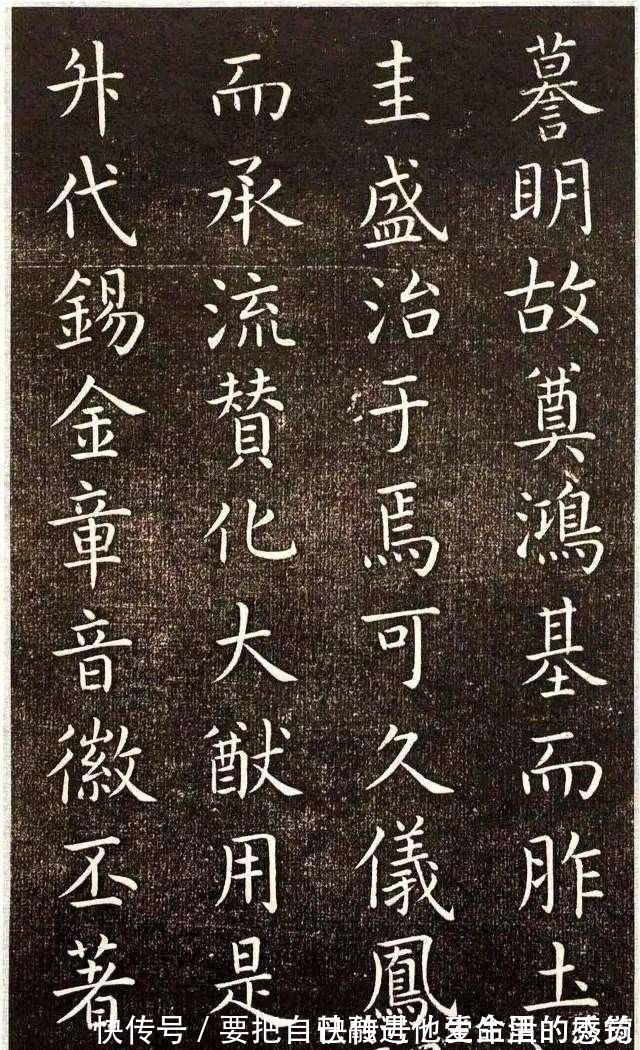 謩明故奠鴻基而胙土
圭盛治于焉可久儀鳳
而承流賛化大猷用是
升代錫金章音徽丕著
快传号/要把自己融进他生命里的感